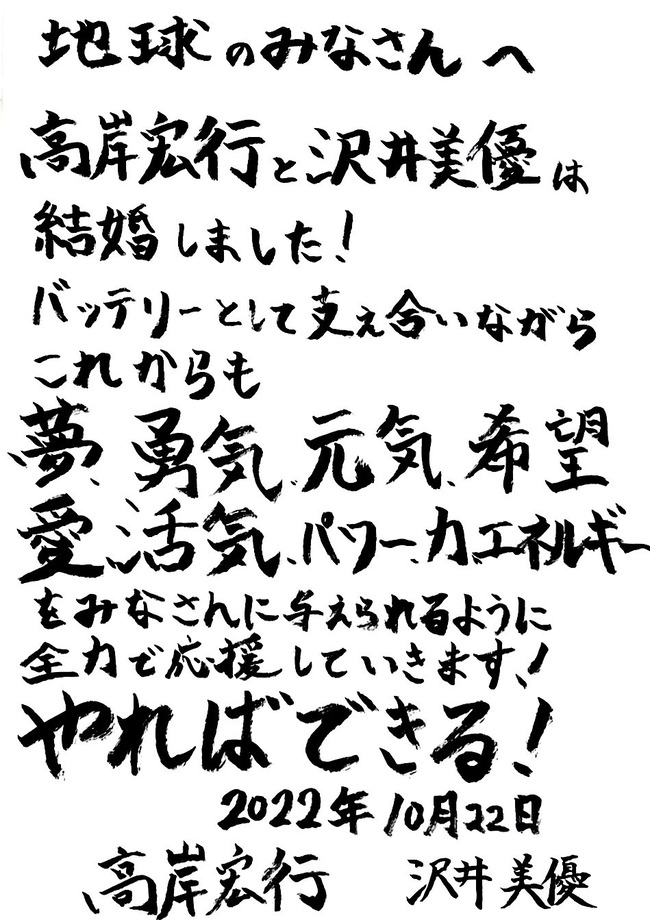 地球のみなさんへ
高岸宏行と沢井美優は
結婚しました！
バッテリーとして支え合いながら
これからも
夢、勇気、元気、希望
愛、活気、パワー、力、エネルギー
をみなさんに与えられるように
全力で応援していきます！
やればできる！
2022年10月22日
高岸宏行 沢井美優